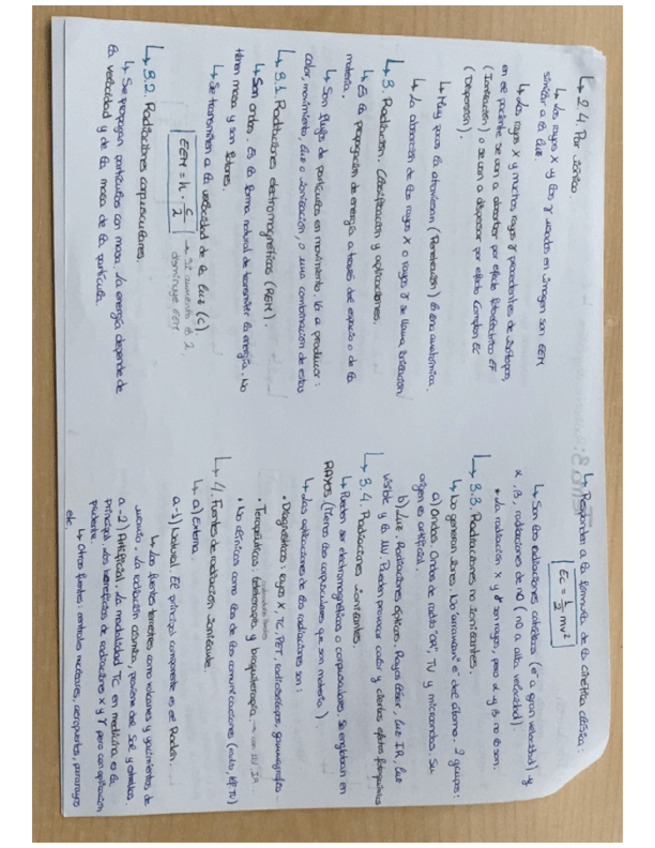 ↳ 2.4. Por iónico.
↳ Los rayos X y los γ usados en imagen son EEM
similar a la luz.
↳ Los rayos X y muchos rayos γ procedentes de isótopos,
en el paciente se van a absorber por efecto fotoeléctrico EF
(Ionización) o se van a dispersar por efecto Compton EC
(Dispersión).
↳ Muy pocos la atraviesan (Penetración) la zona anatómica.
↳ La absorción de los rayos X o rayos γ se llama ionización
↳ 3. Radiación. Clasificación y aplicaciones.
↳ Es la propagación de energía a través del espacio o de la
materia.
↳ Son flujos de partículas en movimiento. Va a producir:
calor, movimiento, luz o ionización, o una combinación de estas
↳ 3.1. Radiaciones electromagnéticas (REM).
↳ Son ondas. Es la forma natural de transmitir la energía. No
tienen masa y son fotones.
↳ Se transmiten a la velocidad de la luz (c).
EEM = h · c/2 → si aumenta la 2,
disminuye EEM
↳ 3.2. Radiaciones corpusculares.
↳ Se propagan partículas con masa. La energía depende de
la velocidad y de la masa de la partícula.
↳ Responden a la fórmula de la cinética clásica:
Ec = 1/2 mv²
↳ Son las radiaciones catódicas (e⁻ a gran velocidad) y
α, β, radiaciones de nº (nº a alta velocidad).
• La radiación X y γ son rayos, pero α y β no lo son.
↳ 3.3. Radiaciones no ionizantes.
↳ No generan iones. No "arrancan" e⁻ del átomo. 2 grupos:
a) Ondas. Ondas de radio "OR", TV y microondas. Su
origen es artificial.
b) Luz. Radiaciones ópticas. Rayos láser, luz IR, luz
visible y la UV. Pueden provocar calor y ciertos efectos fotoquímicos
↳ 3.4. Radiaciones ionizantes.
↳ Pueden ser electromagnéticas o corpusculares. Se engloban en
RAYOS (menos las corpusculares que son materia)
↳ Las aplicaciones de las radiaciones son:
• Diagnósticos: rayos X, TC, PET, radioisótopos, gammagrafías
• Terapéuticos: teleterapia y braquiterapia. → con UV, IR
• No clínicas como las de las comunicaciones (radio, TV)
↳ 4. Fuentes de radiación ionizante.
↳ a) Externa.
a-1) Natural. El principal componente es el Radón.
↳ Las fuentes terrestres como volcanes y yacimientos de
La radiación cósmica, proviene del Sol y estrellas.
a-2) Artificial. La modalidad TC en medicina es la
principal. Los beneficios de radiaciones X y γ pero con aplicación
prudente.
↳ Otras fuentes: centrales nucleares, aeropuertos, pararrayos
etc.